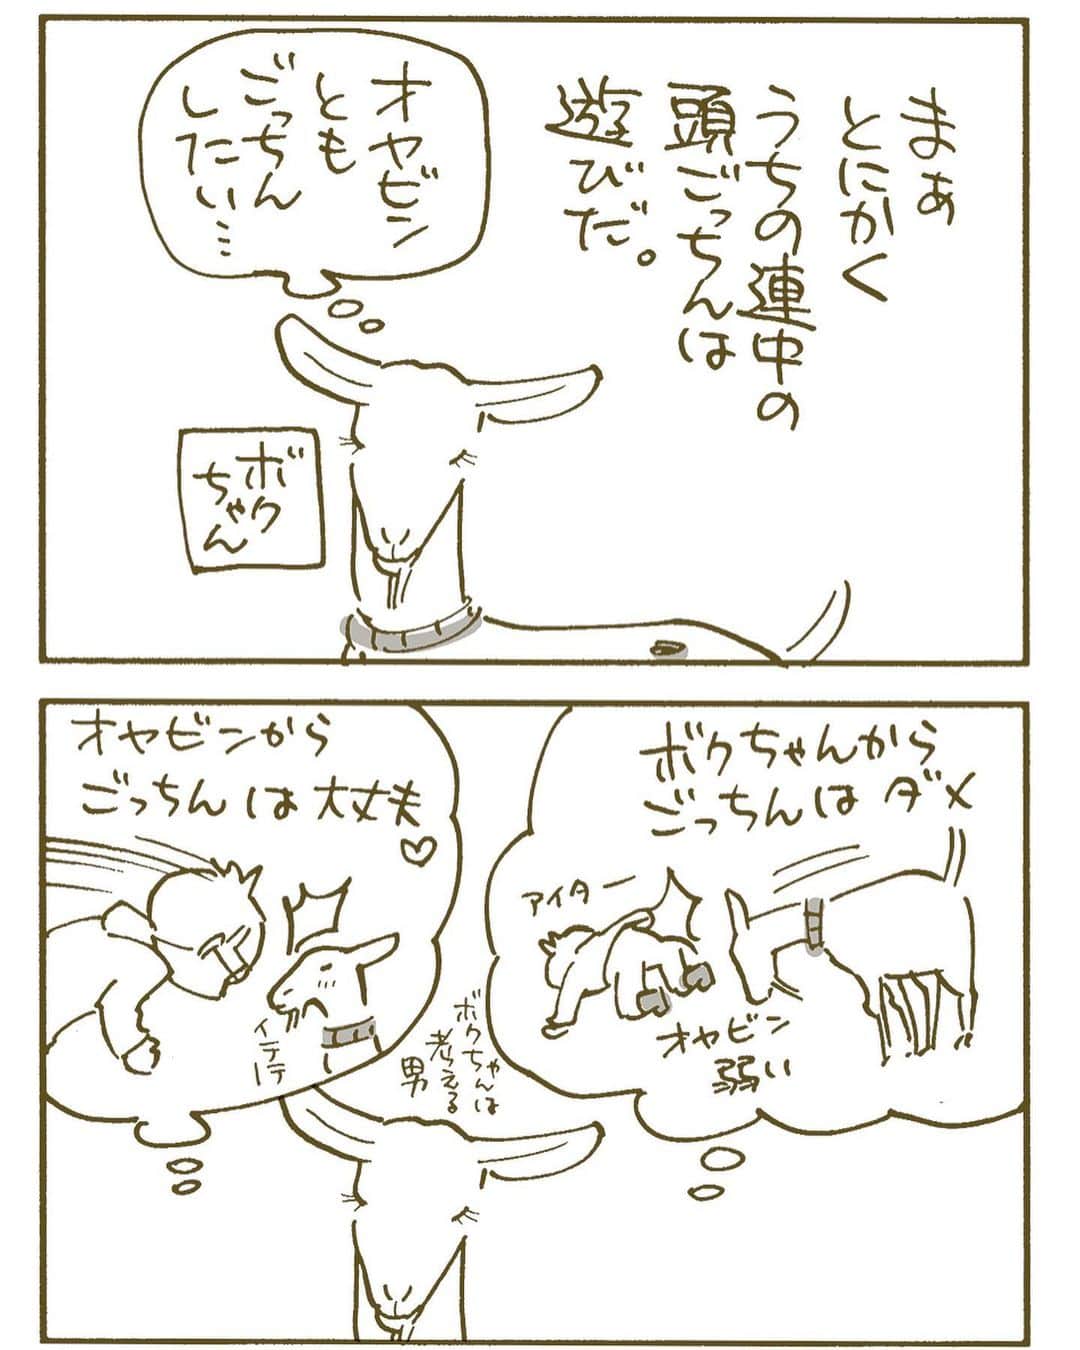 まぁ
とにかく
うちの連中の
頭ごっちんは
遊びだ。
オヤビン
とも
ごっちん
したい…
ボク
ちゃん
ボクちゃんから
ごっちんはダメ
アイター
オヤビン
弱い
オヤビンから
ごっちんは大丈夫♡
イテテ
ボクちゃんは
考える
男